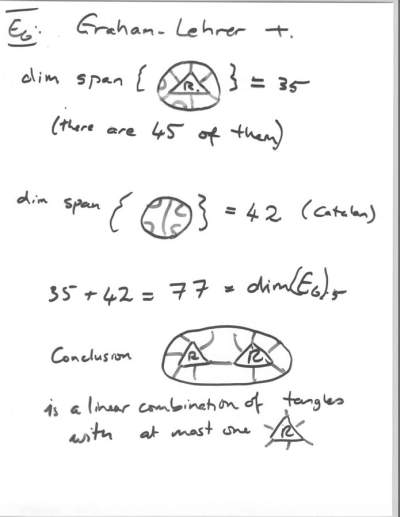 E₆: Graham-Lehrer +.
dim span { R } = 35
(there are 45 of them)
dim span { } = 42 (Catalan)
35 + 42 = 77 = dim(E₆)₅
Conclusion R R
is a linear combination of tangles
with at most one R